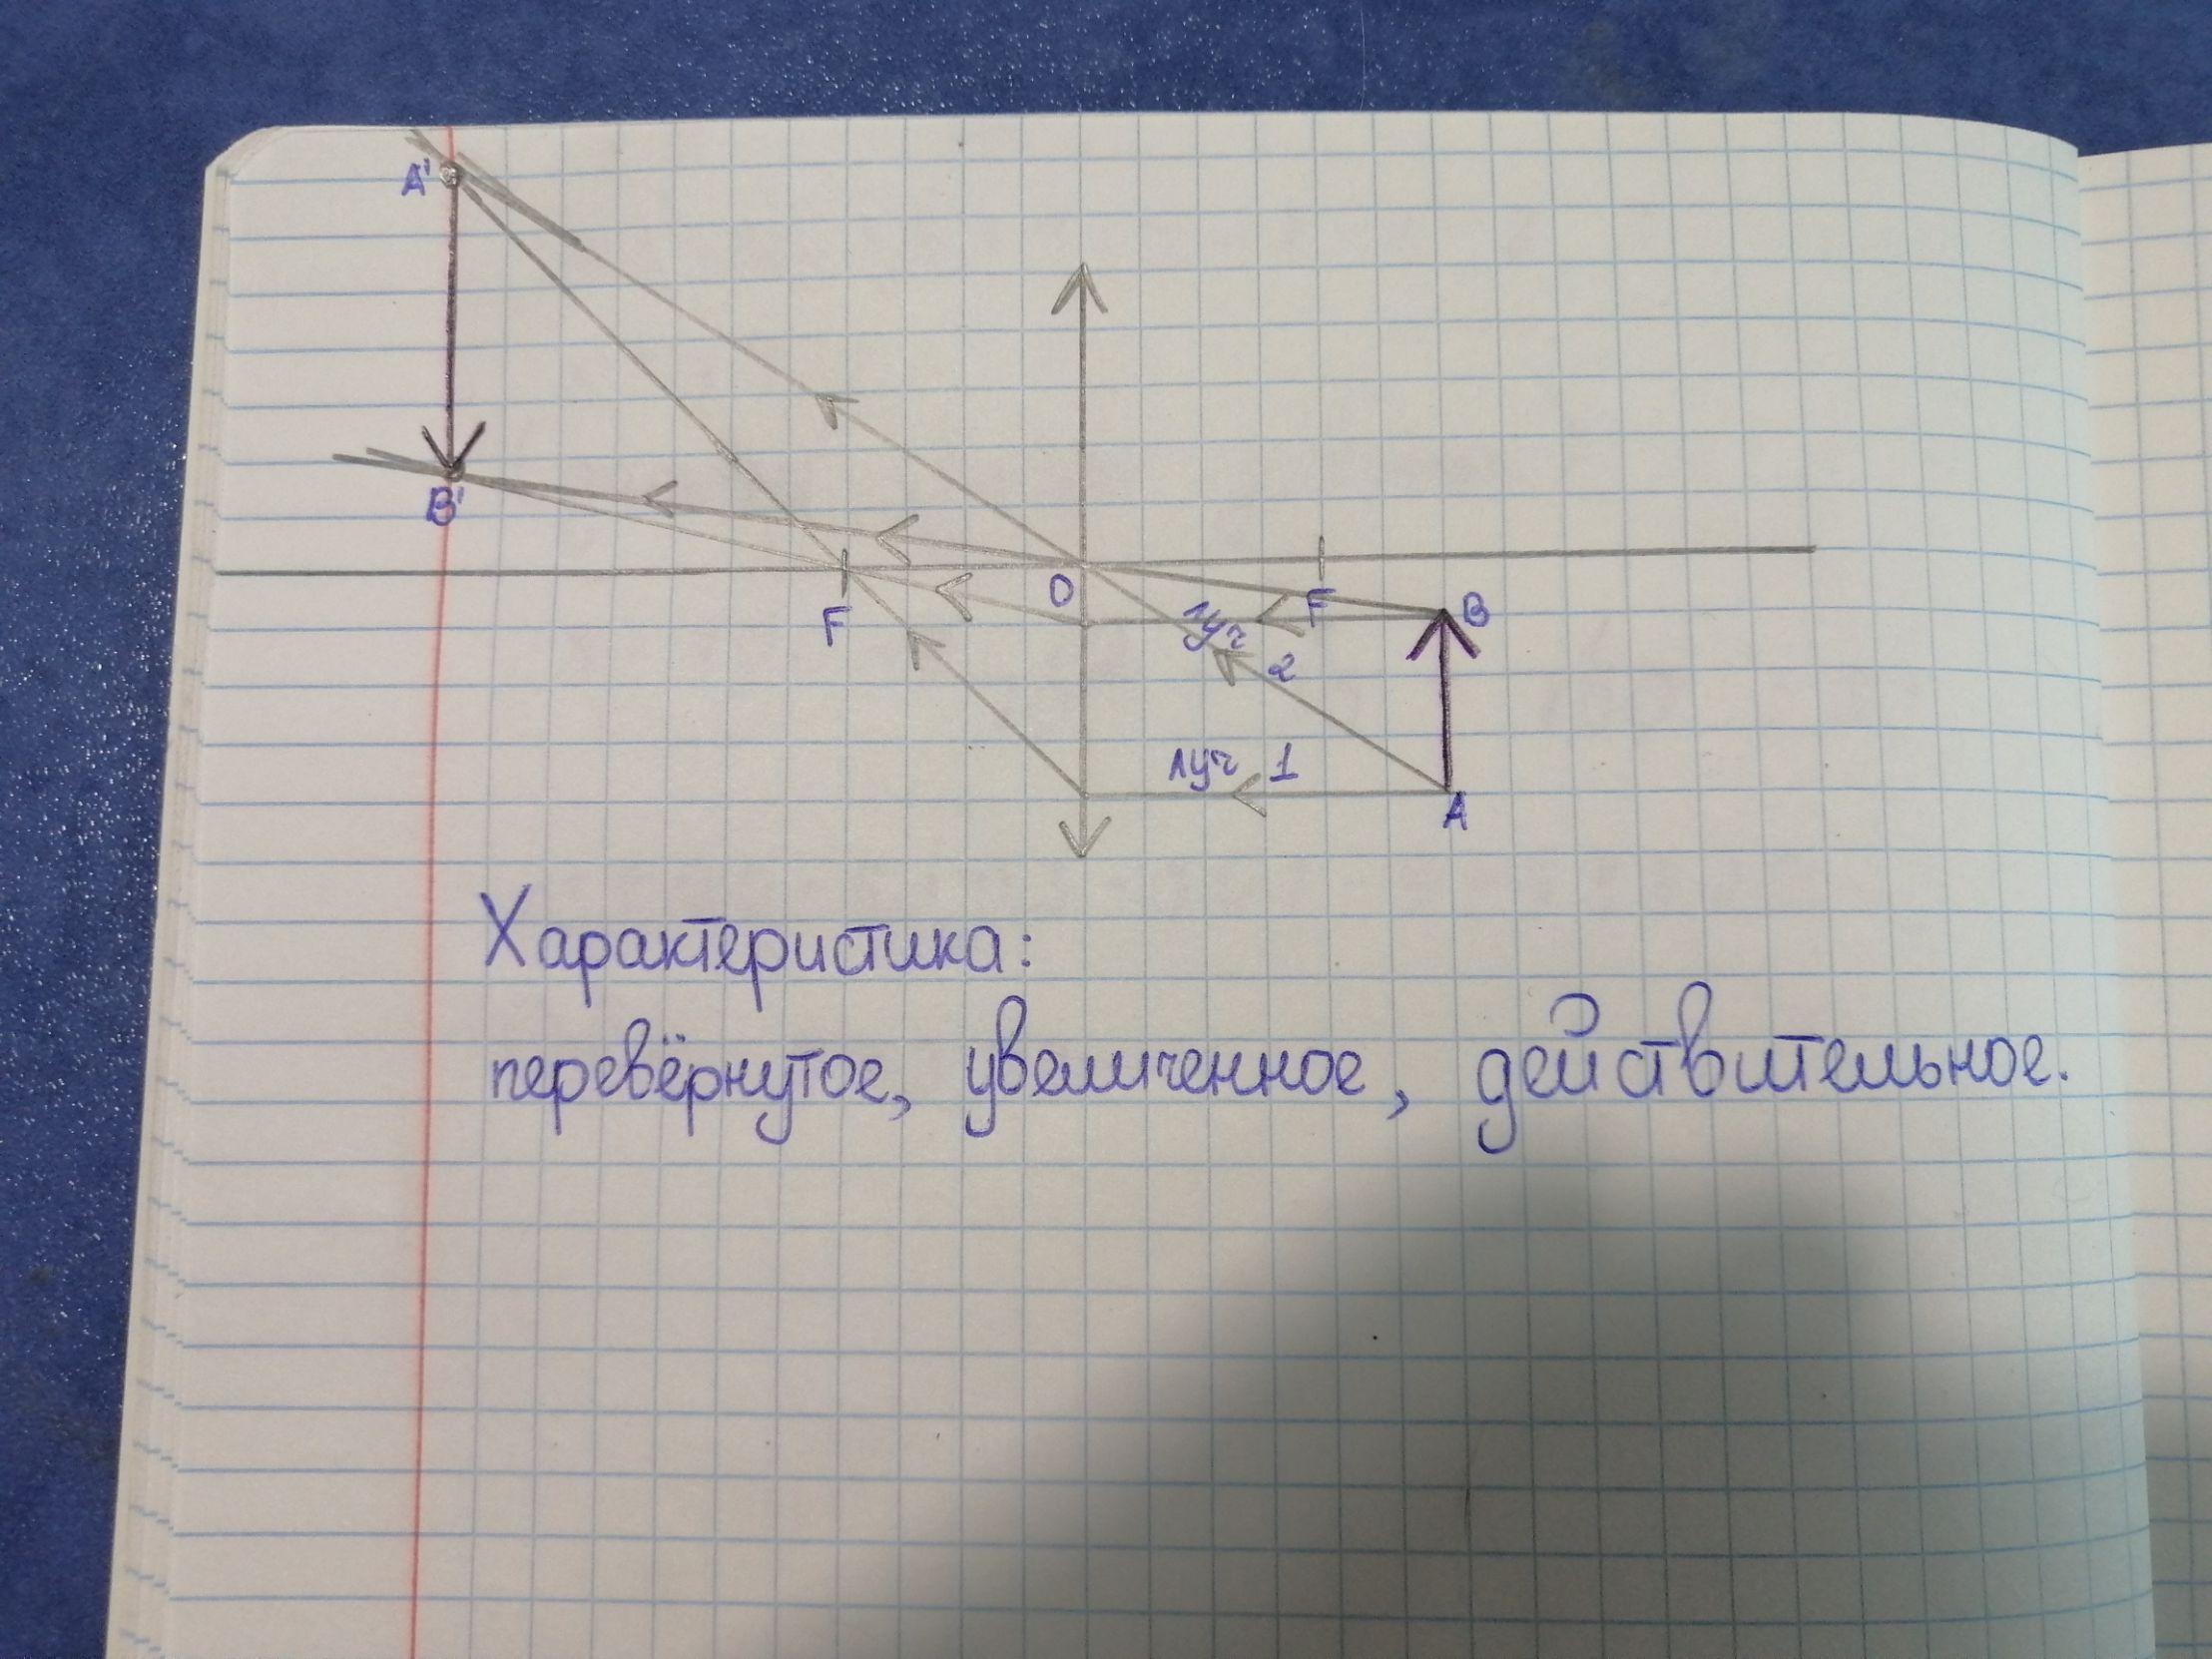 A'
B'
F
O
F
B
луч
2
луч 1
A
Характеристика:
перевёрнутое, увеличенное, действительное.